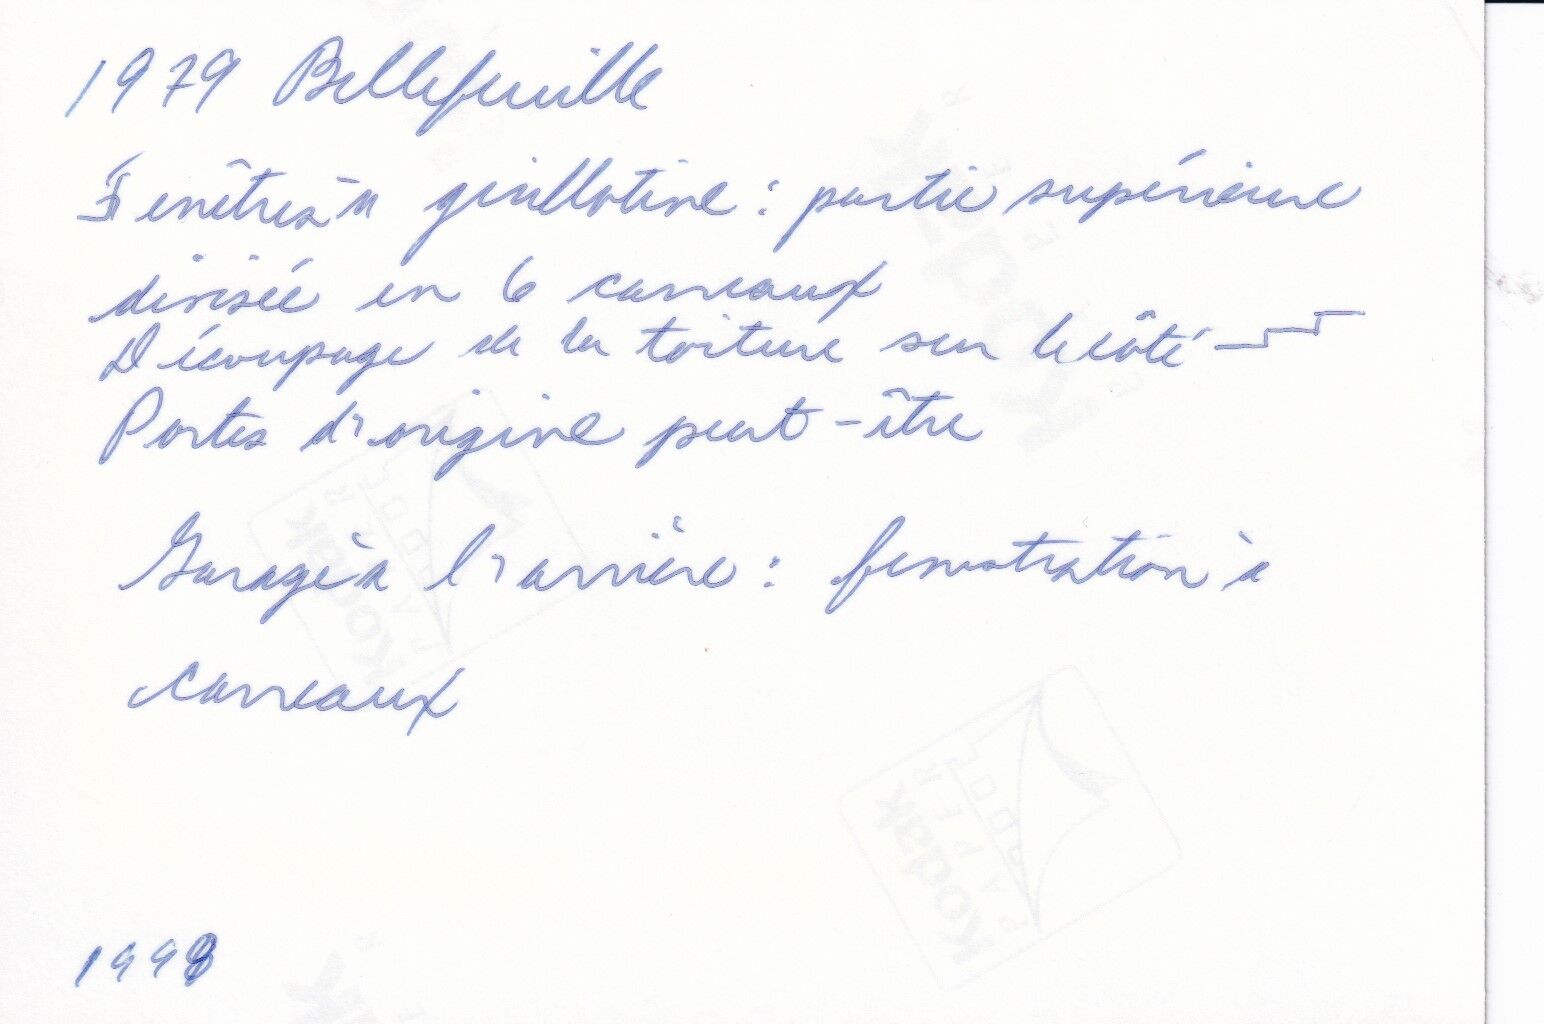 1979 Bellefeuille
Fenêtres à guillotine : partie supérieure
divisée en 6 carreaux
Découpage de la toiture sur le côté
Portes d'origine peut-être
Garage à l'arrière : fenestration à
carreaux
1998
Kodak